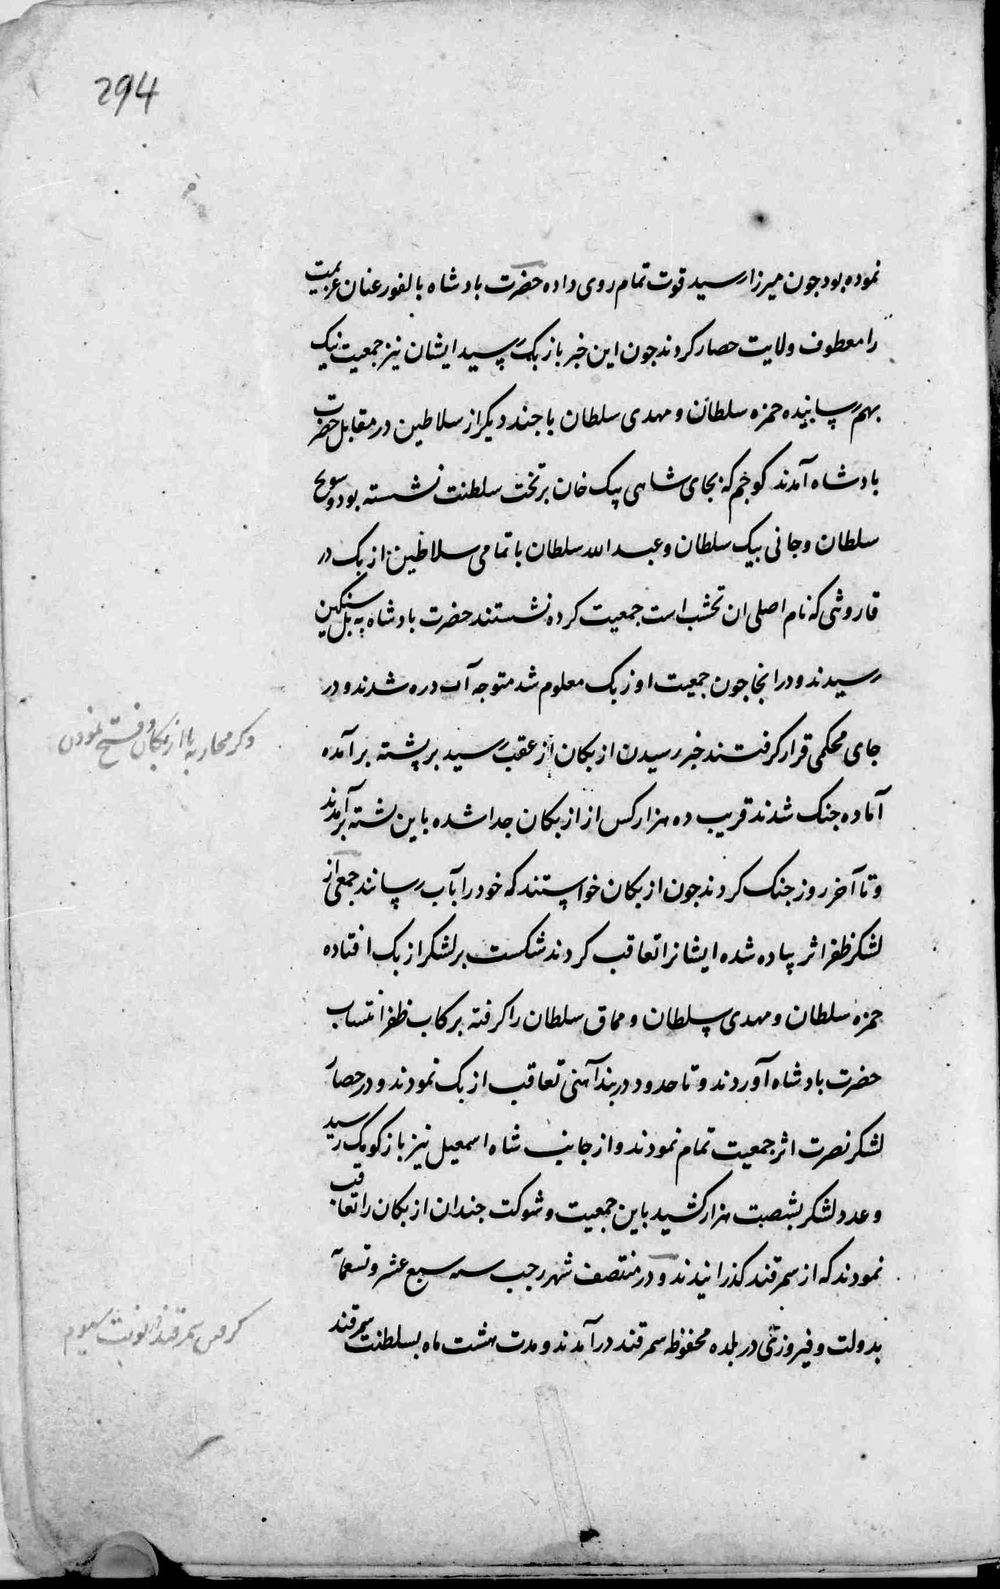 294
نموده بود جون میرزا رسید قوت تمام روی داده حضرت بادشاه بالفور عنان عزیمت
را معطوف ولایت حصار کردند جون این خبر بازبک رسید ایشان نیز جمعیت نیک
بهم رسانیده حمزه سلطان و مهدی سلطان با جند دیکر از سلاطین در مقابل حضرت
بادشاه آمدند کوجم که بجای شاهی بیک خان بر تخت سلطنت نشسته بود و سونج
سلطان و جانی بیک سلطان و عبد الله سلطان با تمامی سلاطین ازبک در
قاروشی که نام اصلی ان نخشب است جمعیت کرده نشستند حضرت بادشاه به بل سنکین
رسیدند و در انجا جون جمعیت اوزبک معلوم شد متوجه آب دره شدند و در
ذکر محاربه با ازبکان و فتح نمودن
جای محکمی قرار کرفتند خبر رسیدن ازبکان از عقب رسید بر پشته برآمده
آماده جنک شدند قریب ده هزار کس از ازبکان جدا شده باین پشته برآمدند
و تا آخر روز جنک کردند جون ازبکان خواستند که خود را بآب رسانند جمعی از
لشکر ظفر اثر پیاده شده ایشانرا تعاقب کردند شکست بر لشکر ازبک افتاده
حمزه سلطان و مهدی سلطان و مماق سلطان را کرفته برکاب ظفر انتساب
حضرت بادشاه آوردند و تا حدود دربند آهنی تعاقب ازبک نمودند و در حصار
لشکر نصرت اثر جمعیت تمام نمودند و از جانب شاه اسمعیل نیز باز کومک رسید
و عدد لشکر بشصت هزار کشید باین جمعیت و شوکت جندان ازبکان را تعاقب
نمودند که از سمرقند کذرانیدند و در منتصف شهر رجب سنه سبع عشر و تسعمآ
کرفتن سمرقند نوبت سیوم
بدولت و فیروزی در بلده محفوظه سمرقند درآمدند و مدت هشت ماه بسلطنت سمرقند